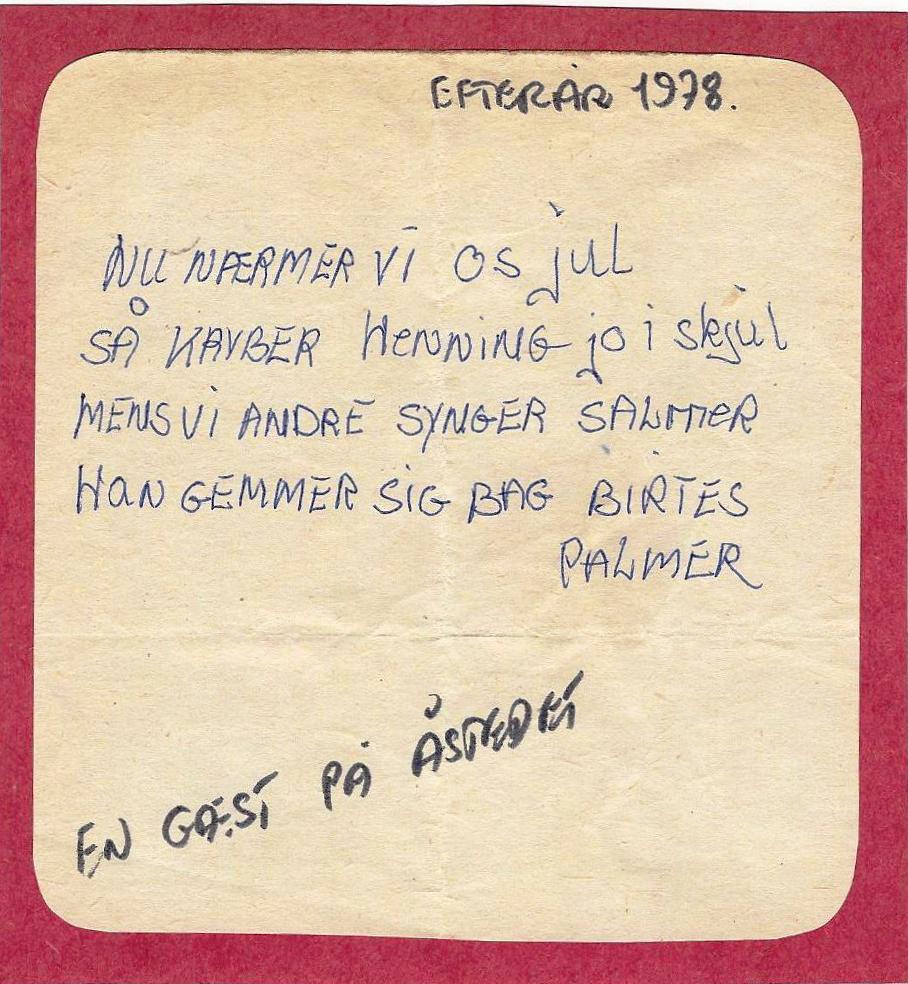 EFTERÅR 1978.
NU NÆRMER VI OS jul
SÅ KRYBER HENNING jo i skjul
MENS VI ANDRE SYNGER SALMER
HAN GEMMER SIG BAG BIRTES
PALMER
EN GÆST PÅ ÅSTEDET